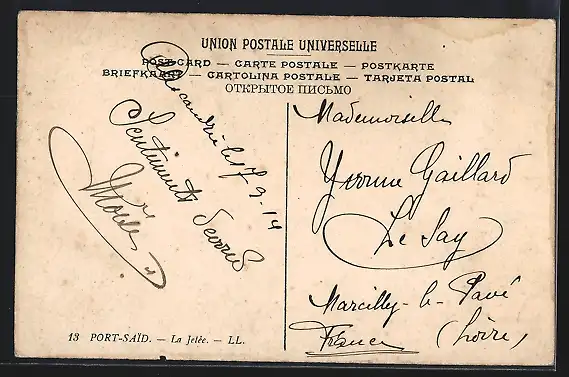 UNION POSTALE UNIVERSELLE
POST CARD — CARTE POSTALE — POSTKARTE
BRIEFKAART — CARTOLINA POSTALE — TARJETA POSTAL
ОТКРЫТОЕ ПИСЬМО
Alexandrie le 17 9-14
Sentiments Dévoués
Mademoiselle
Yvonne Gaillard
Le Say
Marcilly-le-Pavé
France (Loire)
13 PORT-SAÏD. — La Jetée. — LL.